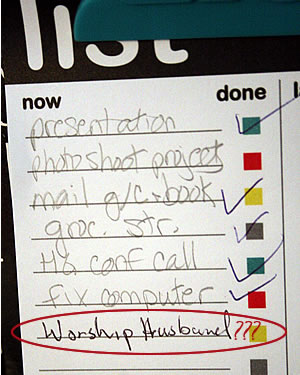 list
now done
presentation
photoshoot project
mail g/c + book
groc. str.
H& conf call
fix computer
Worship Husband???